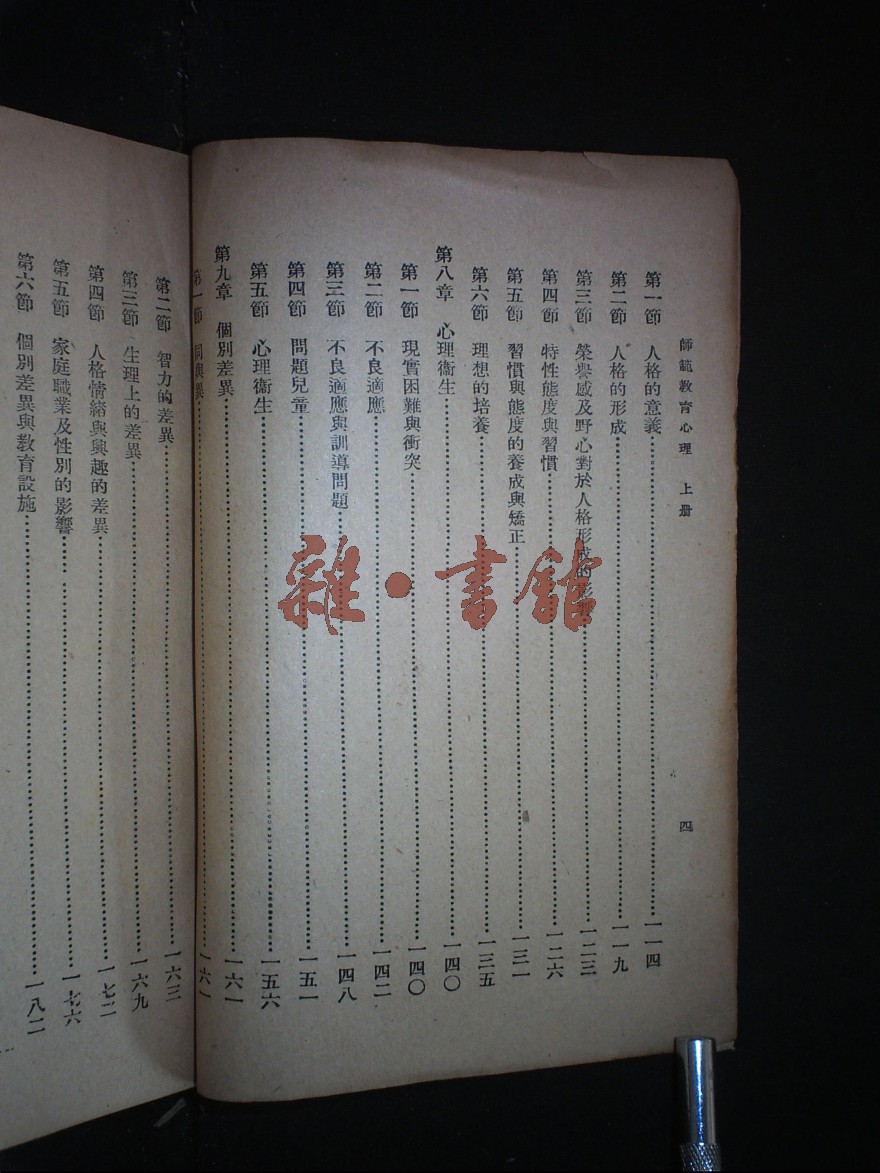 師範教育心理 上册 四
第一節 人格的意義 一一四
第二節 人格的形成 一一九
第三節 榮譽感及野心對於人格形成的影響 一二三
第四節 特性態度與習慣 一二六
第五節 習慣與態度的養成與矯正 一三一
第六節 理想的培養 一三五
第八章 心理衞生 一四〇
第一節 現實困難與衝突 一四〇
第二節 不良適應 一四二
第三節 不良適應與訓導問題 一四八
第四節 問題兒童 一五一
第五節 心理衞生 一五六
第九章 個別差異 一六一
第一節 同與異 一六一
第二節 智力的差異 一六三
第三節 生理上的差異 一六九
第四節 人格情緒與興趣的差異 一七二
第五節 家庭職業及性別的影響 一七六
第六節 個別差異與教育設施 一八二
雜·書館